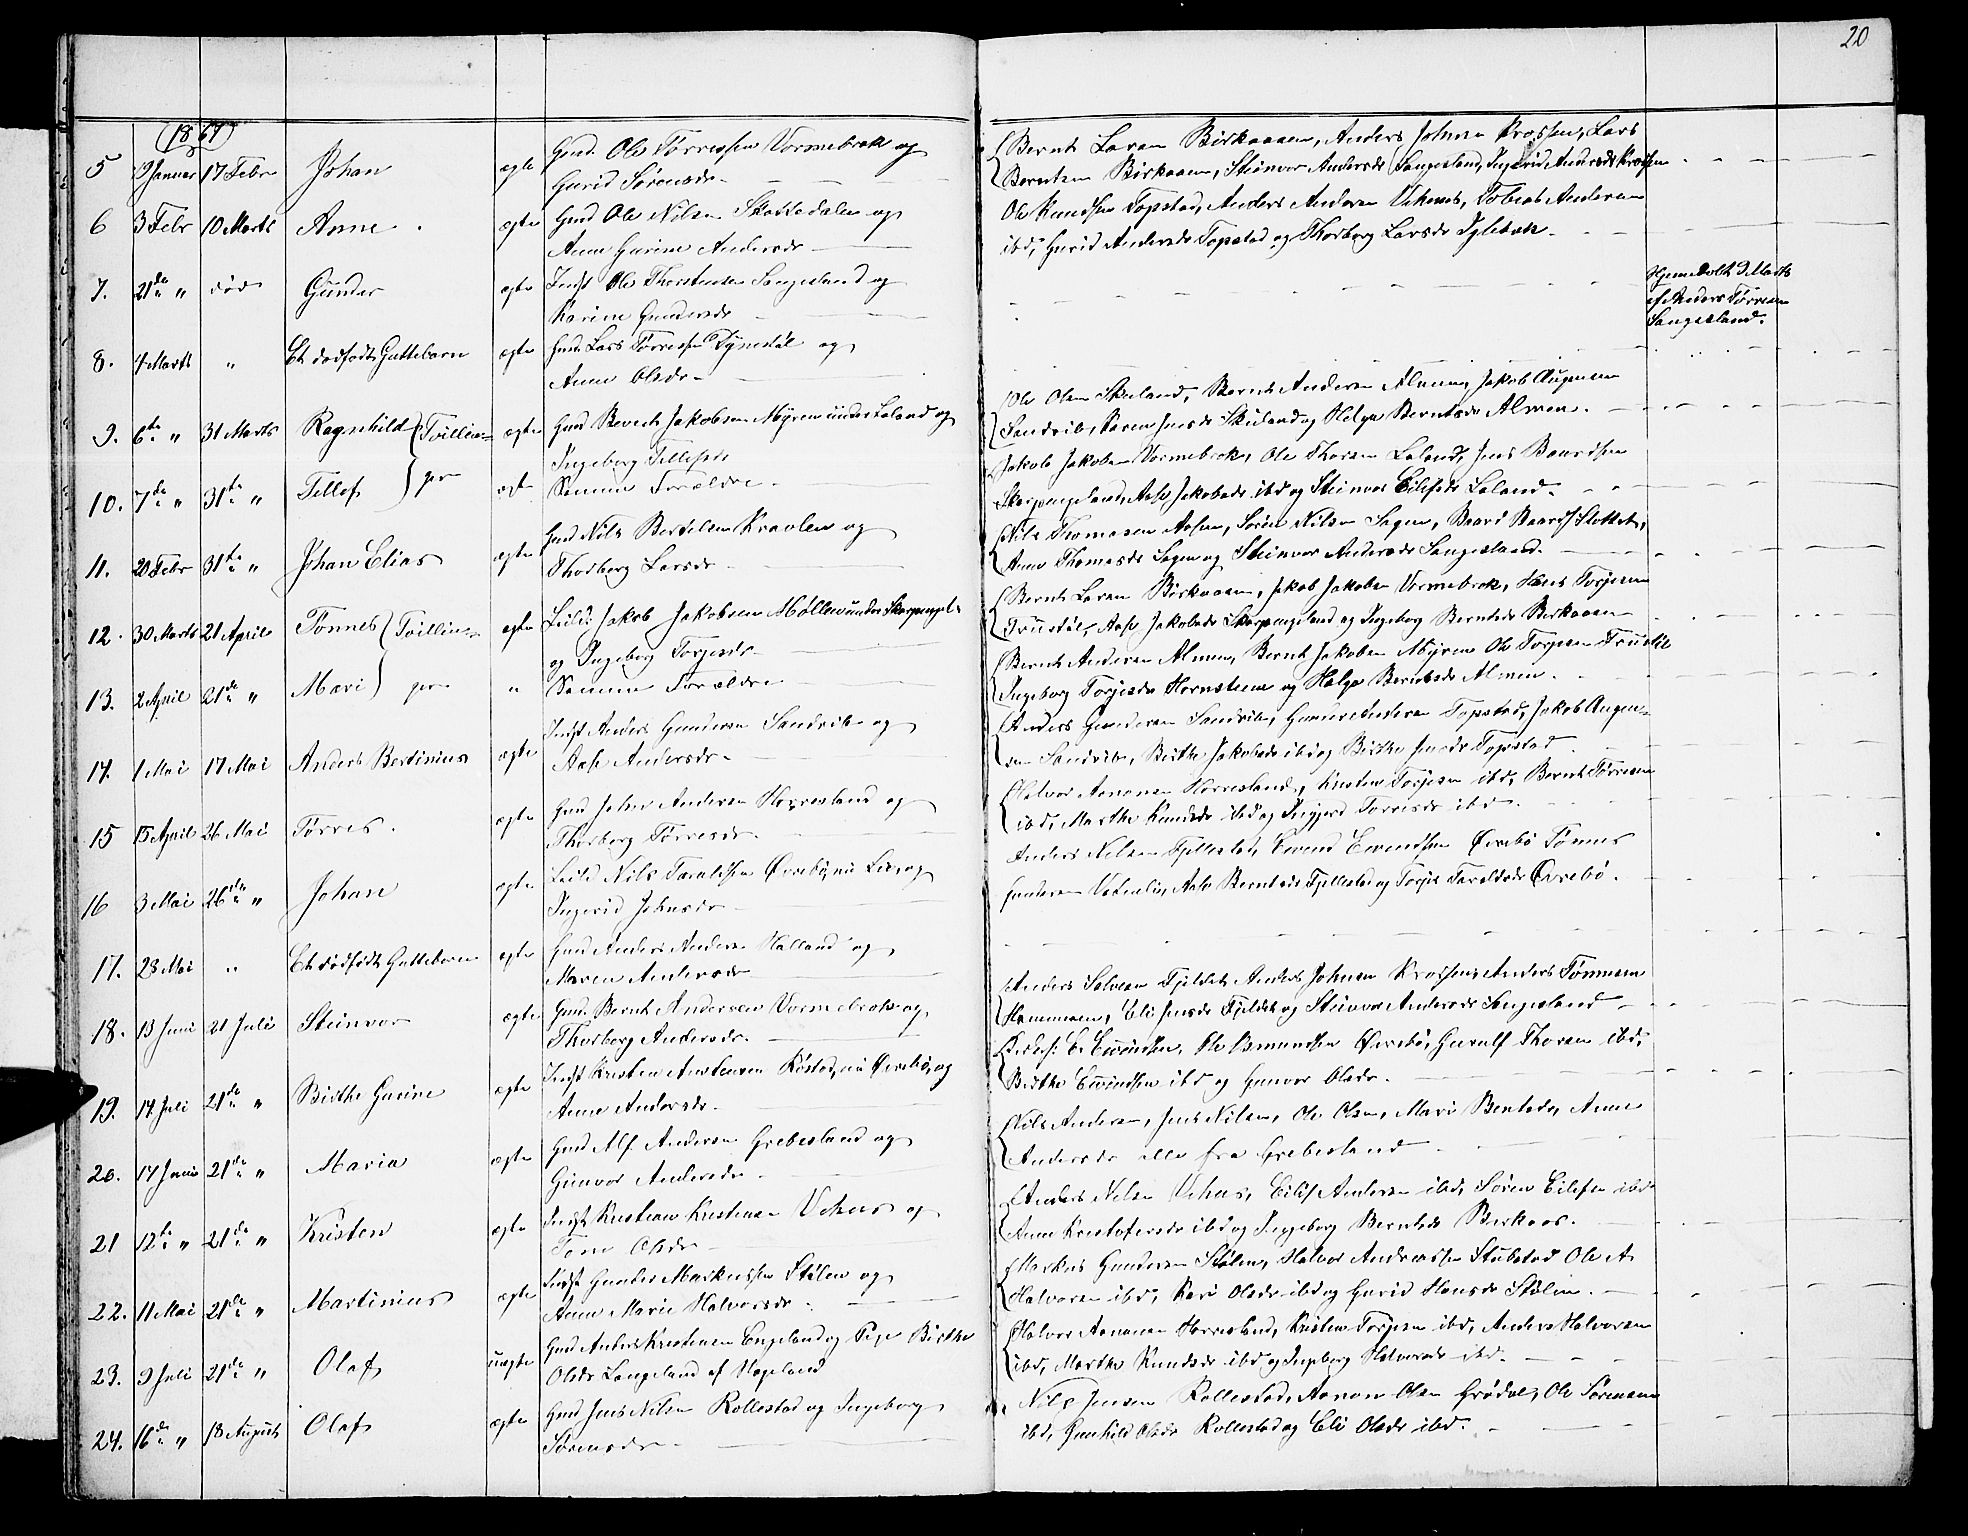 20
(1867)
5 19 Januar 17 Febr Johan ægte Gmd. Ole Tørressen Vormebrok og
Gurid Sørensdr.
Bernt Larsen Birkaasen, Anders Johnsen Krossen, Lars
Berntsen Birkaasen, Steinvor Andersdr Langesland, Ingerid Andersdr Krossen
6 3 Febr 10 Marts Anne ægte Gmd Ole Nilsen Skottedalen og
Anne Gurine Andersdr
Ole Knudsen Topstad, Anders Andersen Vehus, Tobias Andersen
ibd, Gurid Andersdr Topstad og Thorborg Larsdr
7. 21de " død Gunder ægte Indst Ole Thorstensen Langesland og
Karine Gundersdr
Hjemedøbt 3 Marts
af Anders Tørresen
Langesland.
8. 4 Marts " Et dødfødt Guttebarn ægte Gmd. Lars Tørressen Dynestøl og
Anne Olsdr
9. 6te " 31 Marts Ragnhild (Tvillin- ægte Gmd Berent Jakobsen Myren under Leland og
Ingeborg Tellefsdr
Ole Olsen Skuland, Bernt Andersen Almen, Jakob Augensen
Sandvik, Karen Jensdr Skuland og Helga Berntsdr Almen.
10. 7de " 31te " Tellef ) ger ægte Samme Forældre
Jakob Jakobsen Vormebrok, Ole Thorsen Leland, Jens Baardsen
Skarpengland, Aase Jakobsdr ibd og Steinvor Eilefsdr Leland.
11. 20 Febr 31te " Johan Elias ægte Gmd Nils Bertelsen Kraalen og
Thorborg Larsdr
Nils Thomasen Aasen, Søren Nilsen Sagen, Baard Baards. Slottet,
Anne Thomasdr Sagen og Steinvor Andersdr Langesland.
12. 30 Marts 21 April Tønnes (Tvillin- ægte Leild: Jakob Jakobsen Møllen under Skarpengl.
og Ingeborg Torjesdr
Bernt Larsen Birkaasen, Jakob Jakobsen Vormebrok, Hans Torjesen
Truestøl, Aase Jakobsdr Skarpengland og Ingeborg Berntsdr Birkaasen
13. 2 April 21de " Mari ) ger " Samme Forældre
Bernt Andersen Almen, Bernt Jakobsen Myren Ole Torjesen Truestøl
Ingeborg Torjesdr Hornsteen og Helga Berntsdr Almen.
14. 1 Mai 17 Mai Anders Bertinius ægte Indst Anders Gundersen Sandvik og
Aase Andersdr
Anders Gundersen Sandvik, Andersen Topstad, Jakob Augen-
sen Sandvik, Birthe Jakobsdr ibd og Birthe Jensdr Topstad
15 15 April 26 Mai Tørres. ægte Gmd John Andersen Horresland og
Thorborg Tørresdr
Halvor Aanonsen Horresland, Kristen Torjesen ibd, Bernt Tørresen
ibd, Marthe Knudsdr ibd og Torresdr ibd
16 3 Mai 26de " Johan ægte Leild Nils Taraldsen Øvrebø, nu Lie og
Ingerid Johnsdr
Anders Nilsen Fjellestad, Eivind Eivindsen Øvrebø Tønnes
Gundersen Vatnelie, Aase Berntsdr Fjellestad og Torjer Taraldsdr Øvrebø.
17. 28 Mai " Et dødfødt Guttebarn ægte Gmd Anders Andersen Halland og
Maren Andersdr
18. 13 Juni 21 Juli Steinvor ægte Gmd. Bernt Andersen Vormebrok og
Thorborg Andersdr
Anders Salvesen Fjeldet, Anders Johnsen Krossen, Anders Tønnesen
Eli Jensdr Fjeldet og Steinvor Andersdr Langesland
19. 14 Juli 21de " Birthe Gurine ægte Indst Kristen Røstad, nu Øvrebø, og
Anne Andersdr
E. Eivindsen, Ole Osmundsen Øvrebø, Gerulf Thorsen ibd,
Birthe Eivindsen ibd og Gunvor Olsdr
20. 17 Juni 21de " Maria ægte Gmd Alf Andersen Grebesland og
Gunvor Andersdr
Nils Andersen, Jens Nilsen, Ole Olsen, Mari Bentsdr, Anne
Andersdr alle fra Grebesland
21 12te " 21de " Kristen ægte Indst Kristian Kristensen Vehus og
Tone Olsdr
Anders Nilsen Vehus, Eilef Andersen ibd, Søren Eilefsen ibd
Anne Kristofersdr ibd og Ingeborg Berntsdr Birkaas.
22. 11 Mai 21de " Martinius ægte Indst Gunder Markussen Stølen og
Anne Marie Halvorsdr
Markus Gundersen Stølen, Halvor Andreassen Stubstad Ole A.
Halvorsen ibd, Kari Olsdr ibd og Gurid Hansdr Stølen.
23. 9 Juli 21de " Olaf uægte Gmd Anders Kristensen Engeland og Pige Birthe
Olsdr Langeland af Hægeland
Halvor Aanonsen Horresland, Kristen Torjesen ibd, Anders Halvorsen
ibd, Marthe Knudsdr ibd og Ingeborg Halvorsdr ibd.
24. 16de " 18 August Olaf ægte Gmd Jens Nilsen Rollestad og Ingeborg
Sørensdr
Nils Jensen Rollestad, Aanon Olsen Grødal, Ole Sørensen
ibd, Gunhild Olsdr Rollestad og Eli Olsdr ibd.